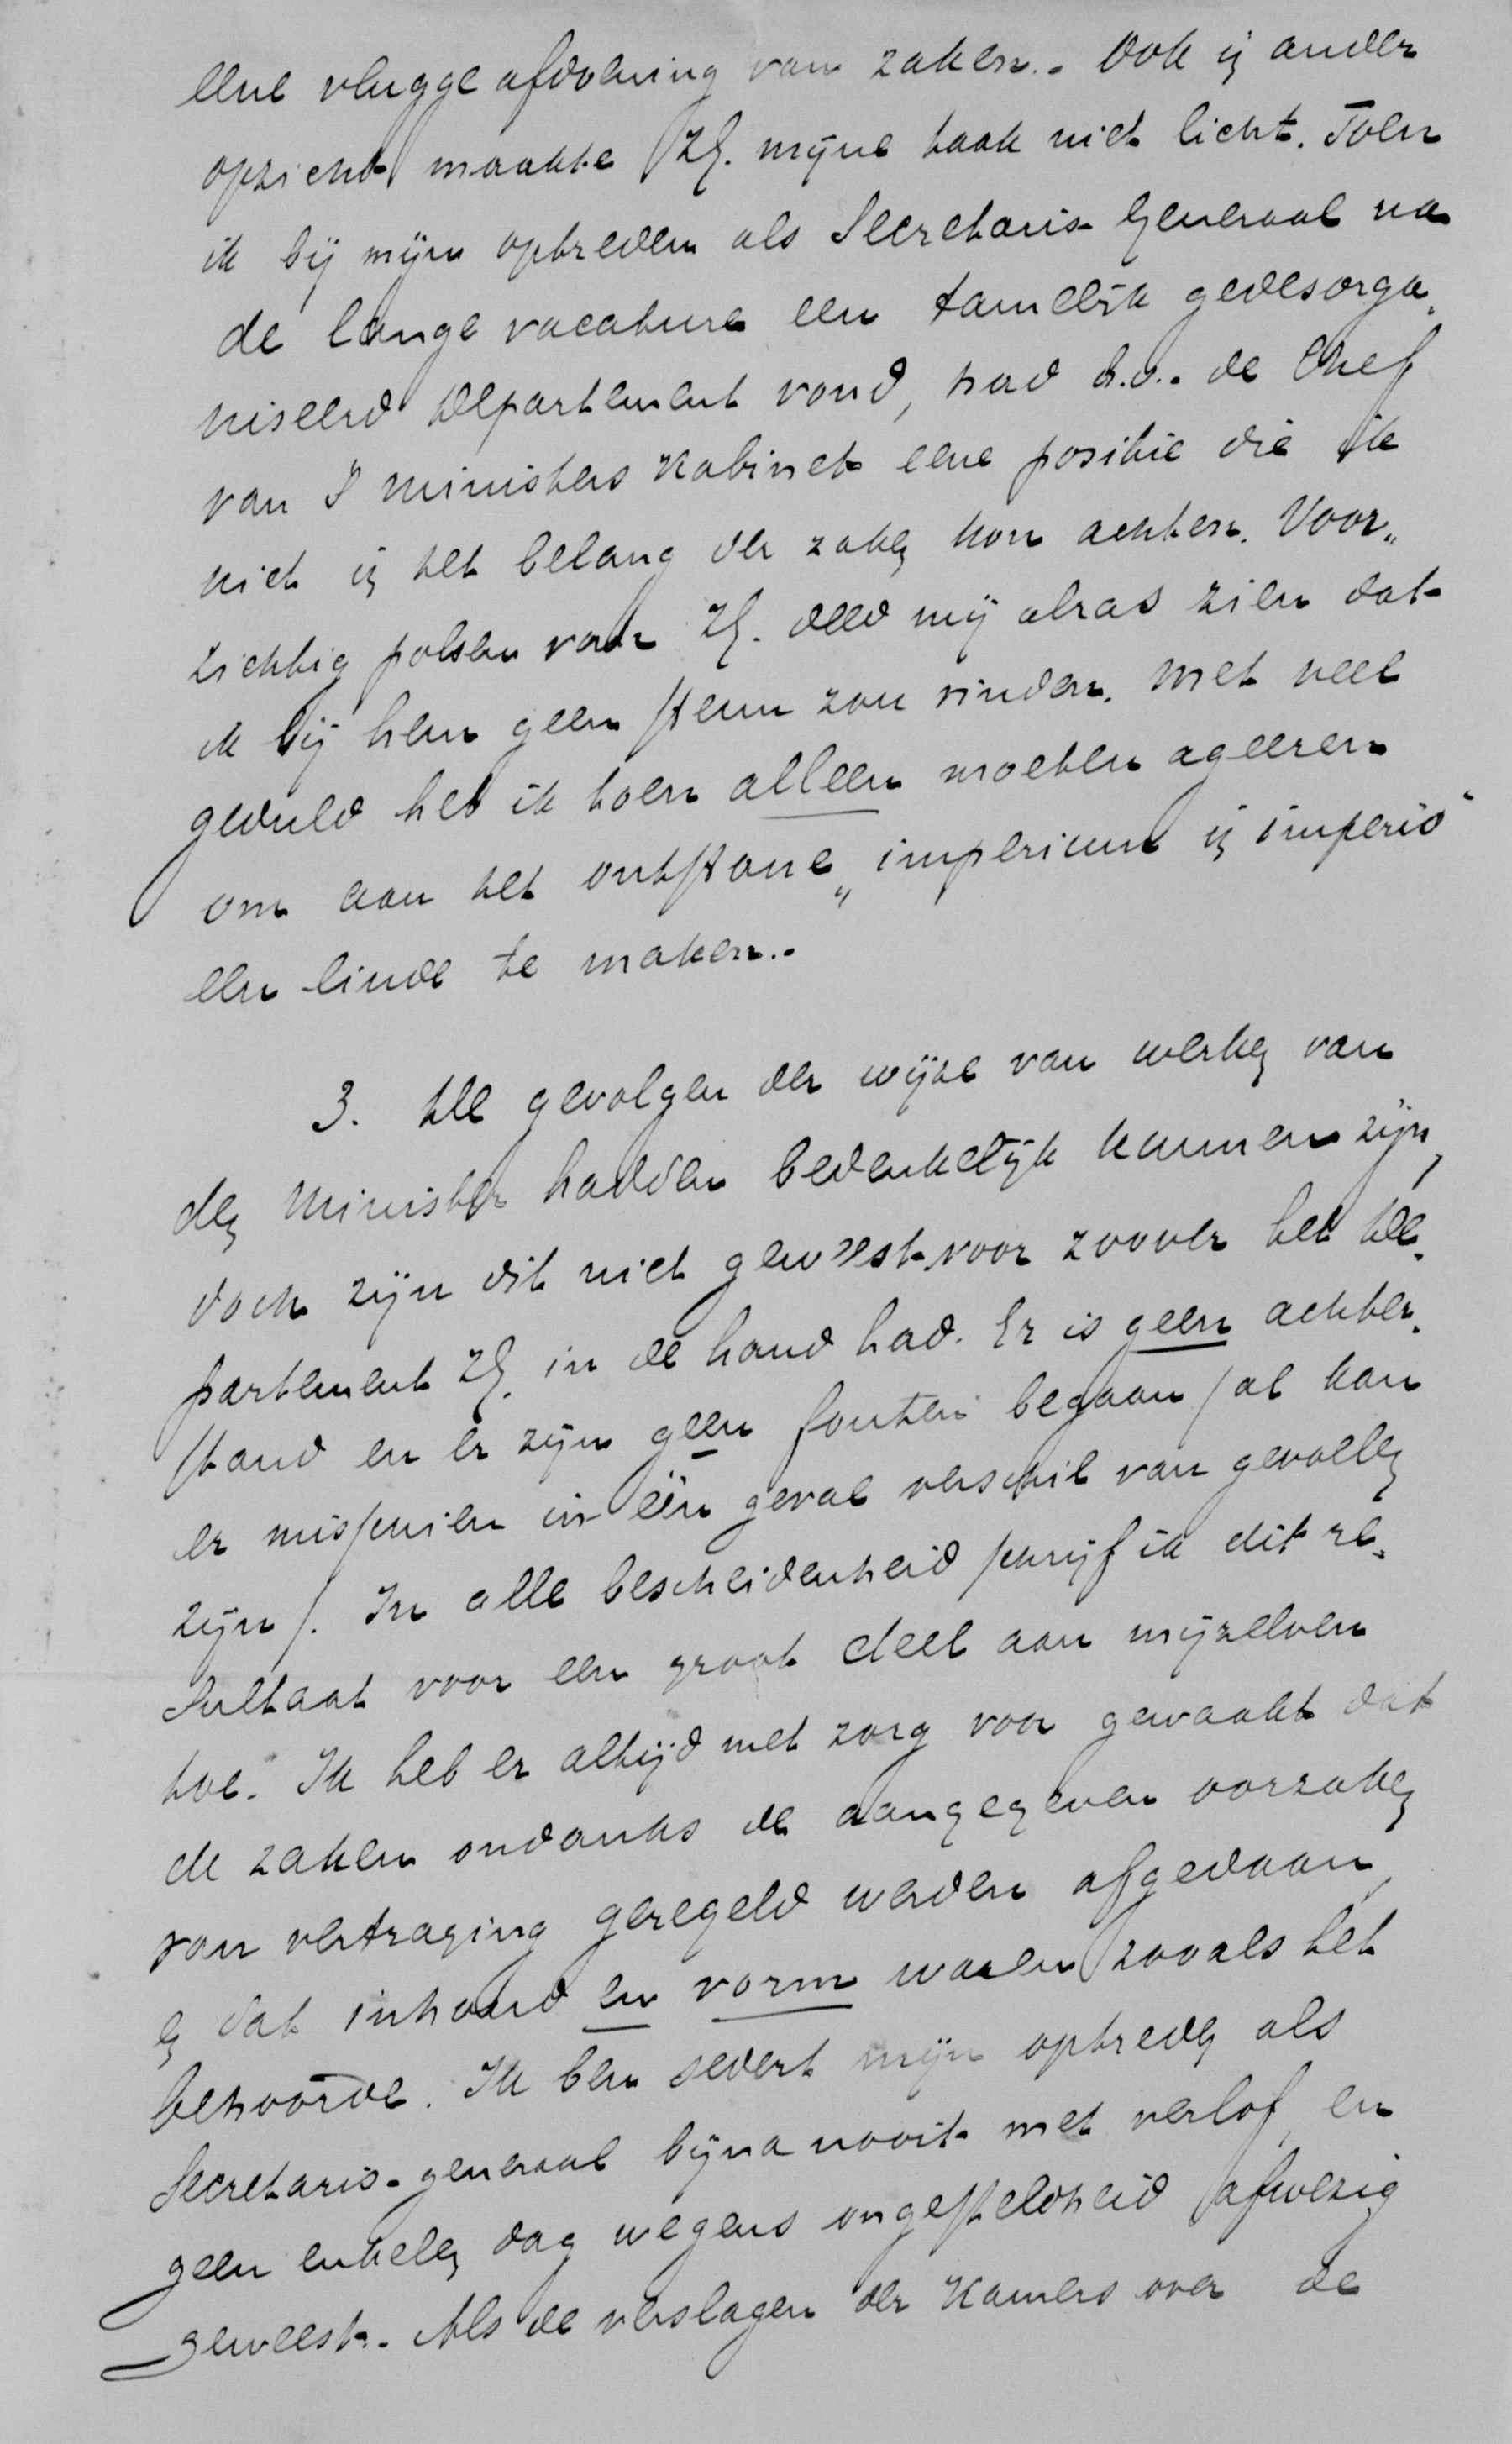 eene vlugge afdoening van zaken.. Ook in ander
opzicht maakte ZE. mijne taak niet licht. Toen
ik bij mijn optreden als Secretaris Generaal na
de lange vacature een tamelijk gedesorga-
niseerd Departement vond, had b.v.. de Chef
van 's Ministers Kabinet eene positie die ik
niet in het belang der zaken kon achten. Voor-
zichtig polsen van ZE. deed mij alras zien dat
ik bij hem geen steun zou vinden. Met veel
geduld heb ik toen alleen moeten ageeren
om aan het ontstane „imperium in imperio"
een einde te maken..
3. De gevolgen der wijze van werken van
den Minister hadden bedenkelijk kunnen zijn,
doch zijn dit niet geweest voor zoover het De-
partement ZE. in de hand had. Er is geen achter-
stand en er zijn geen fouten begaan (al kan
er misschien in één geval verschil van gevoelen
zijn). In alle bescheidenheid schrijf ik dit re-
sultaat voor een groot deel aan mijzelven
toe. Ik heb er altijd met zorg voor gewaakt dat
de zaken ondanks de aangegeven oorzaken
van vertraging geregeld werden afgedaan,
en dat inhoud en vorm waren zooals het
behoorde. Ik ben sedert mijn optreden als
Secretaris-generaal bijna nooit met verlof, en
geen enkelen dag wegens ongesteldheid afwezig
geweest. Als de verslagen der Kamers over de